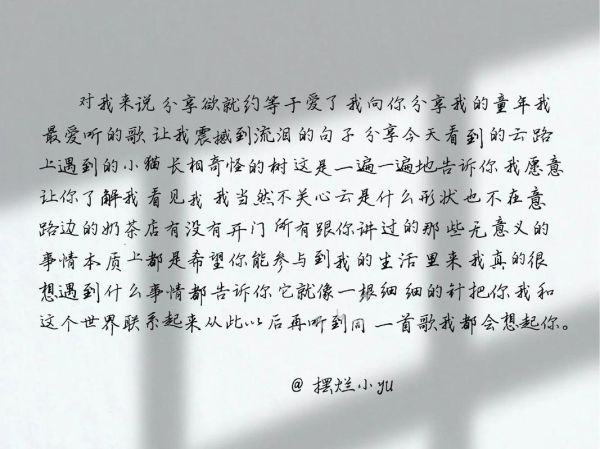 对我来说分享欲就约等于爱了我向你分享我的童年我
最爱听的歌让我震撼到流泪的句子分享今天看到的云路
上遇到的小猫长相奇怪的树这是一遍一遍地告诉你我愿意
让你了解我看见我我当然不关心云是什么形状也不在意
路边的奶茶店有没有开门所有跟你讲过的那些无意义的
事情本质上都是希望你能参与到我的生活里来我真的很
想遇到什么事情都告诉你它就像一根细细的针把你我和
这个世界联系起来从此以后再听到同一首歌我都会想起你。
@摆烂小yu